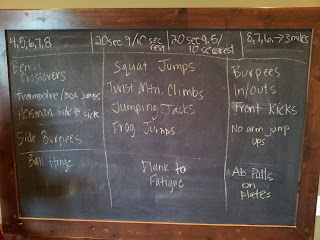 4,5,6,7,8
Bench
Crossovers
Trampoline/Box Jumps
Heisman Side to Side
Side Burpees
Ball Hinge
20sec 9/10sec
rest
20sec 9,5/
10sec rest
Squat Jumps
Twist Mtn. Climbs
Jumping Jacks
Frog Jumps
Plank to
Fatigue
8,7,6,→3 miles
Burpees
In/outs
Front Kicks
No arm jump
ups
Ab Pulls
on
plates